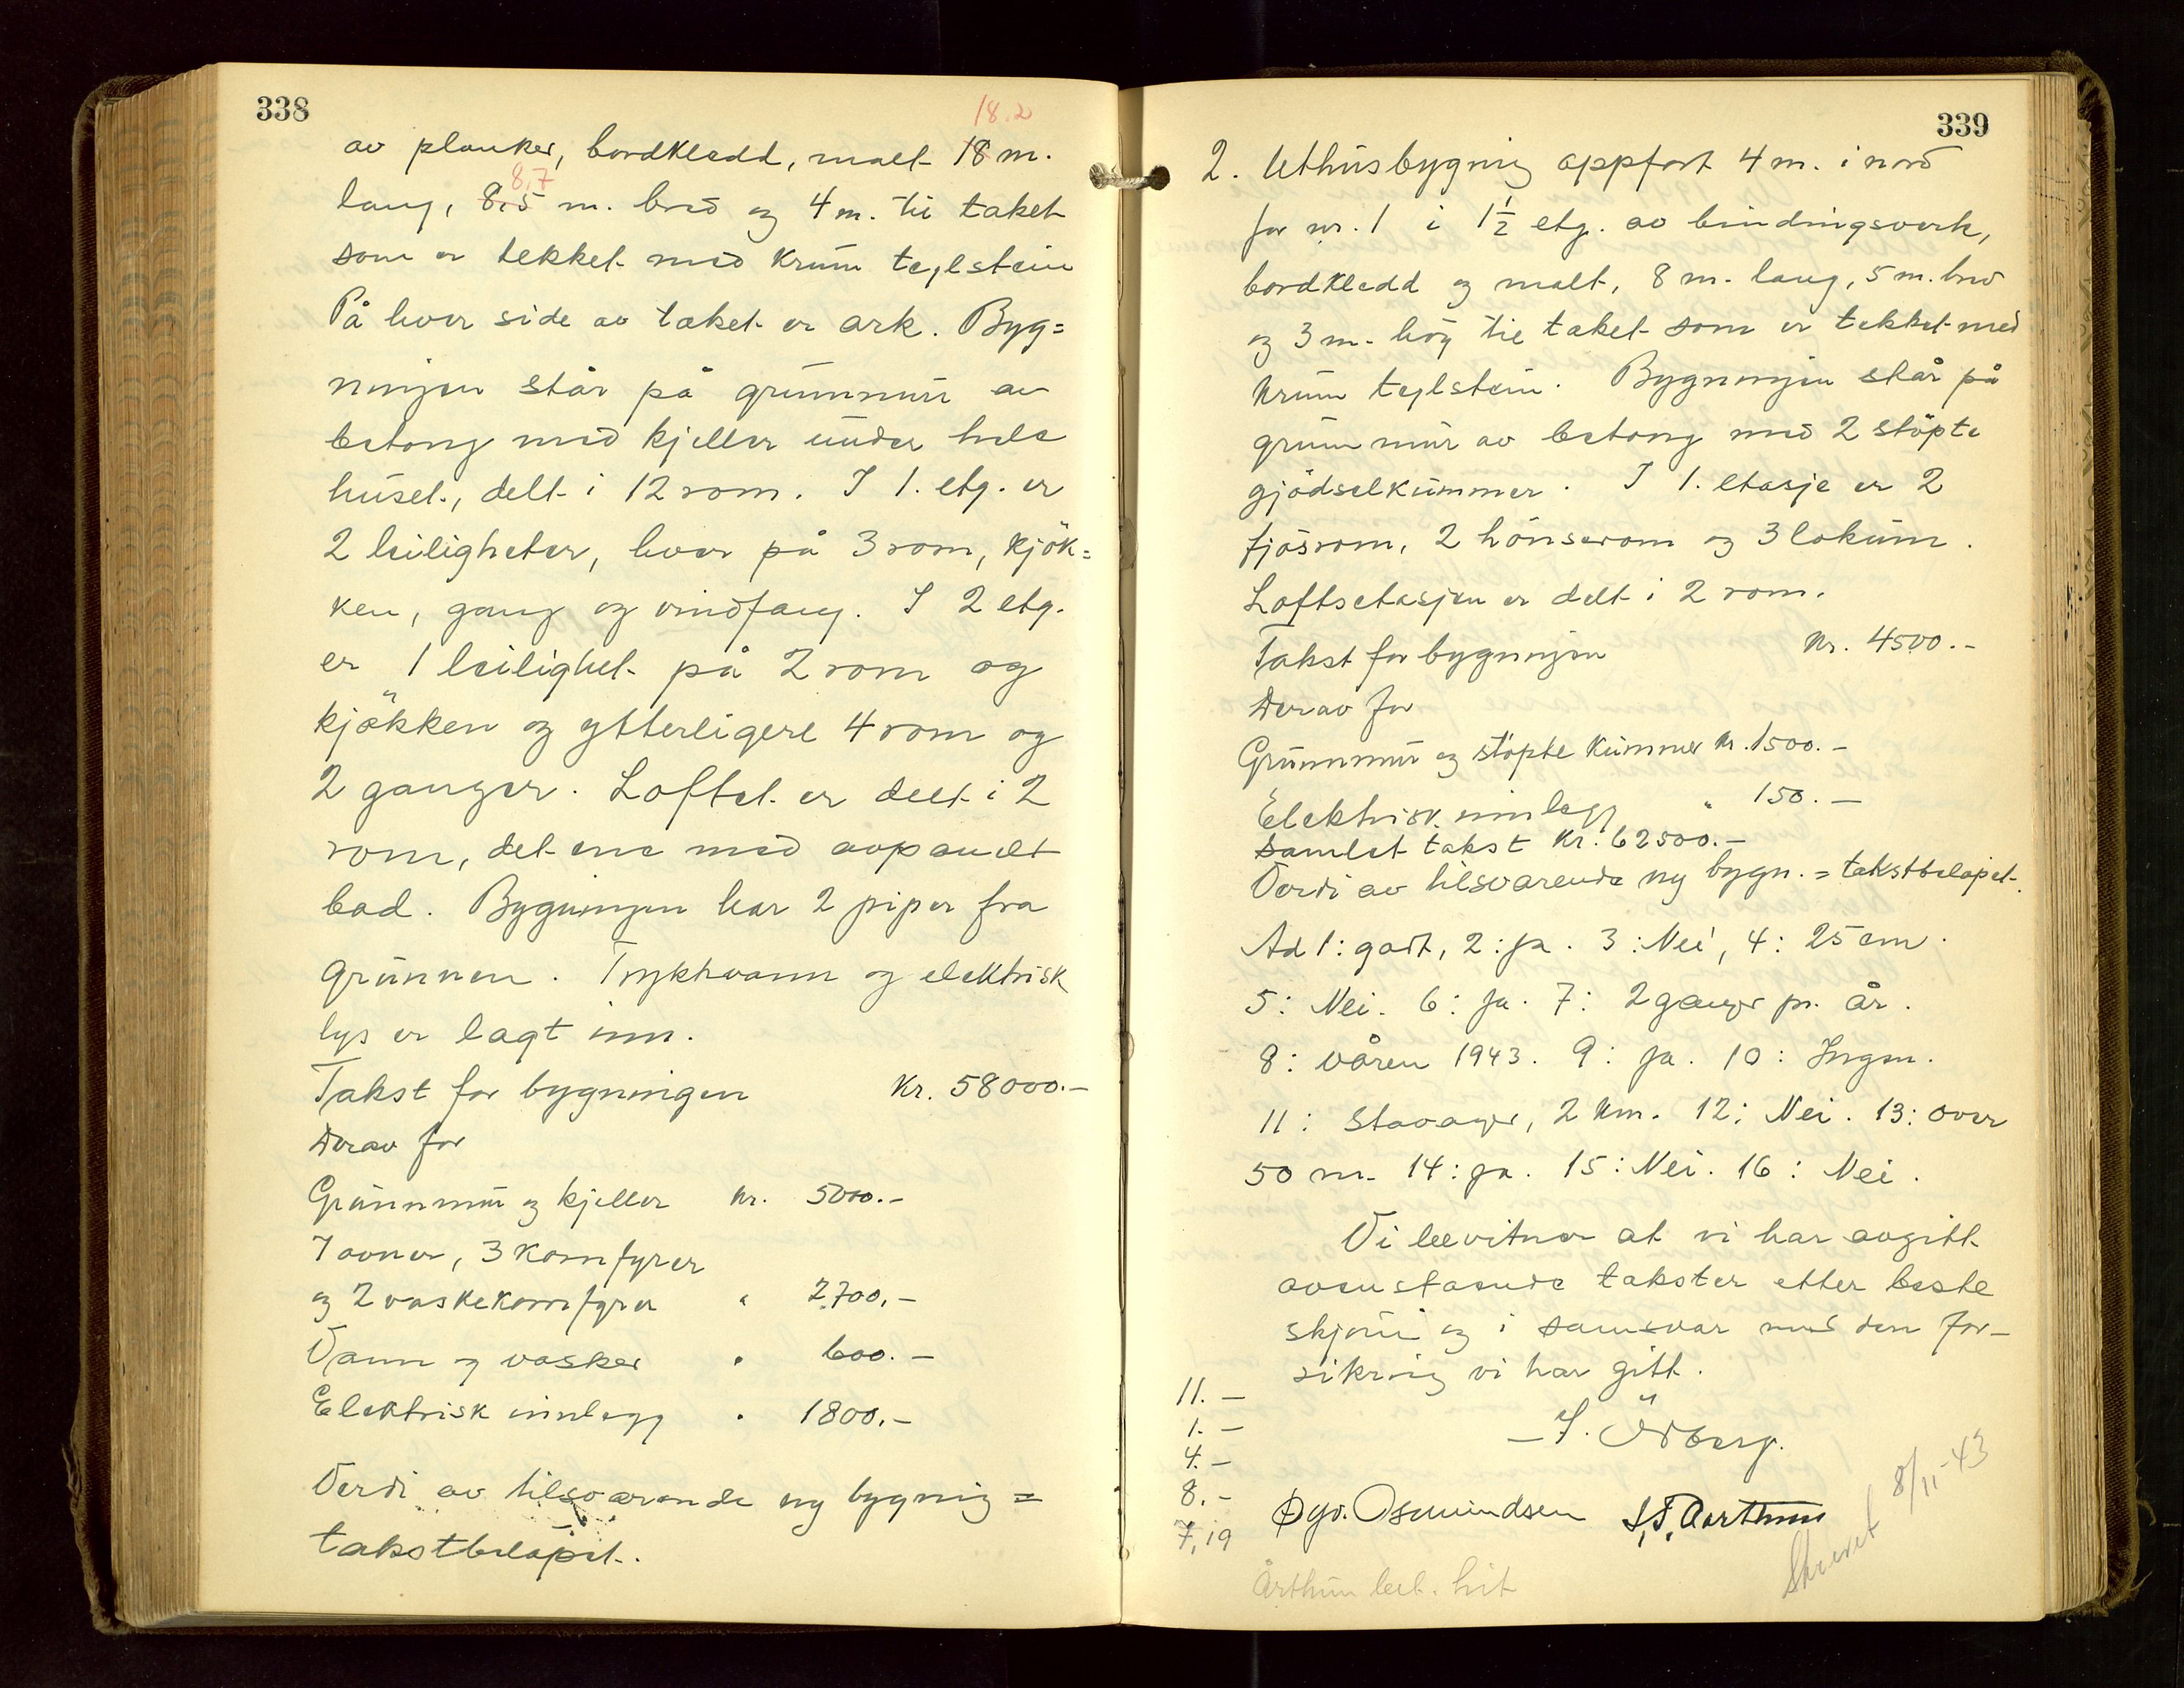 338
18.2
av planker, bordkledd, malt 18 m.
8,7
lang, 8,5 m. bred og 4 m. til taket
som er tekket med krum teglstein
På hver side av taket er ark. Byg=
ningen står på grunnmur av
betong med kjeller under hele
huset, delt i 12 rom. I 1. etg. er
2 leiligheter, hver på 3 rom, kjök=
ken, gang og vindfang. I 2 etg.
er 1 leilighet på 2 rom og
kjökken og ytterligere 4 rom og
2 ganger. Loftet er delt i 2
rom, det ene med avpanelt
bad. Bygningen har 2 piper fra
grunnen. Trykkvann og elektrisk
lys er lagt inn.
Takst for bygningen Kr. 58000.-
Derav for
Grunnmur og kjeller Kr. 5000.-
7 ovner, 3 komfyrer
og 2 vaskekomfyrer " 2700,-
Vann og vasker " 600.-
Elektrisk innlegg " 1800,-
Verdi av tilsvarende ny bygning =
takstbeløpet.
339
2. Uthusbygning oppført 4 m. i nord
for nr. 1 i 1½ etg. av bindingsverk,
bordkledd og malt, 8 m. lang, 5 m. bred
og 3 m. höy til taket som er tekket med
krum teglstein. Bygningen står på
grunnmur av betong med 2 stöpte
gjödselkummer. I 1. etasje er 2
fjösrom, 2 hönserom og 3 lokum.
Loftsetasjen er delt i 2 rom.
Takst for bygningen Kr. 4500.-
Derav for
Grunnmur og stöpte kummer Kr. 1500.-
Elektrisk innlegg " 150.-
Samlet takst Kr. 62500.-
Verdi av tilsvarende ny bygn. = takstbeløpet.
Ad 1: godt, 2: Ja. 3: Nei, 4: 25 cm.
5: Nei. 6: Ja. 7: 2 ganger pr. år.
8: våren 1943. 9: Ja. 10: Ingen.
11: Stavanger, 2 km. 12: Nei. 13: over
50 m. 14: Ja. 15: Nei. 16: Nei.
Vi bevitner at vi har avgitt
ovenstaende takster etter beste
skjönn og i samsvar med den for-
sikring vi har gitt.
11.-
1.-
4.-
8.-
7,19
Ödberg.
Osmundsen
Årthun
Skrevet 8/11-43